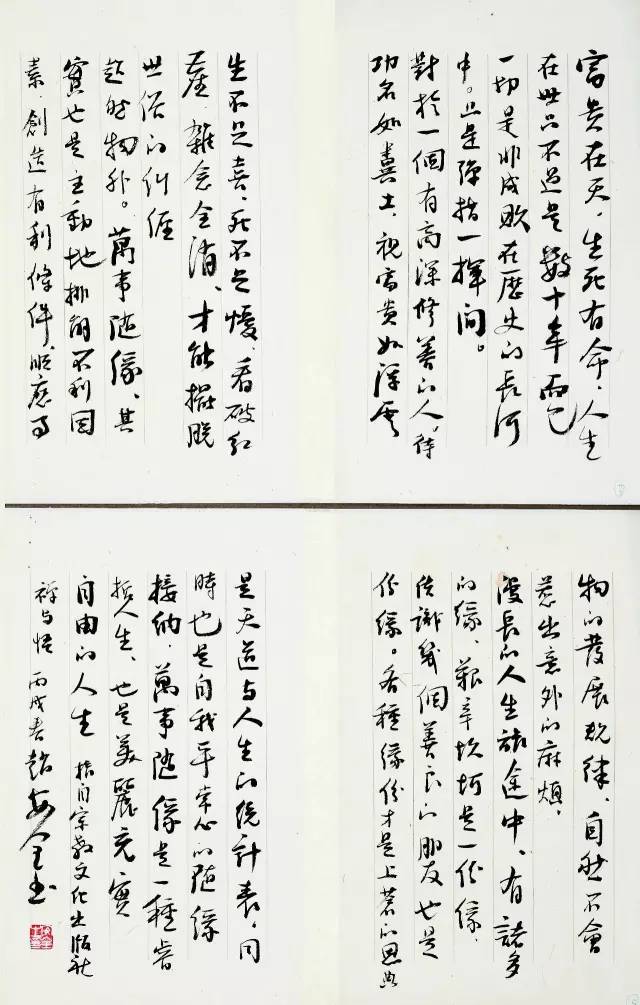 富贵在天,生死有命,人生
在世只不过是數十年而已
一切是非成败在歷史的長河
中。只是彈指一揮间。
對於一個有高深修養的人,待
功名如糞土,视富贵如浮雲
生不足喜,死不足憂,看破红
塵,雜念全消,才能擺脱
世俗的纠缠
超然物外。萬事随缘、其
實也是主動地排除不利因
素,創造有利條件,順應事
物的發展规律,自然不會
惹出意外的麻烦,
漫長的人生旅途中,有諸多
的缘、艱辛坎坷是一份缘,
结識幾個善良的朋友也是
份缘。各種缘份才是上苍的恩典
是天道与人生的统计表,同
時也是自我平常心的随缘
接纳,萬事随缘是一種睿
哲人生、也是美麗充實
自由的人生 摘自宗教文化出版社
禅与悟 丙戌春趙安全书